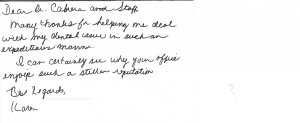 Dear Dr. Cabera and Staff,
Many thanks for helping me deal
with my dental issue in such an
expeditious manner.
I can certainly see why your office
enjoys such a stellar reputation
Best Regards,
Karen